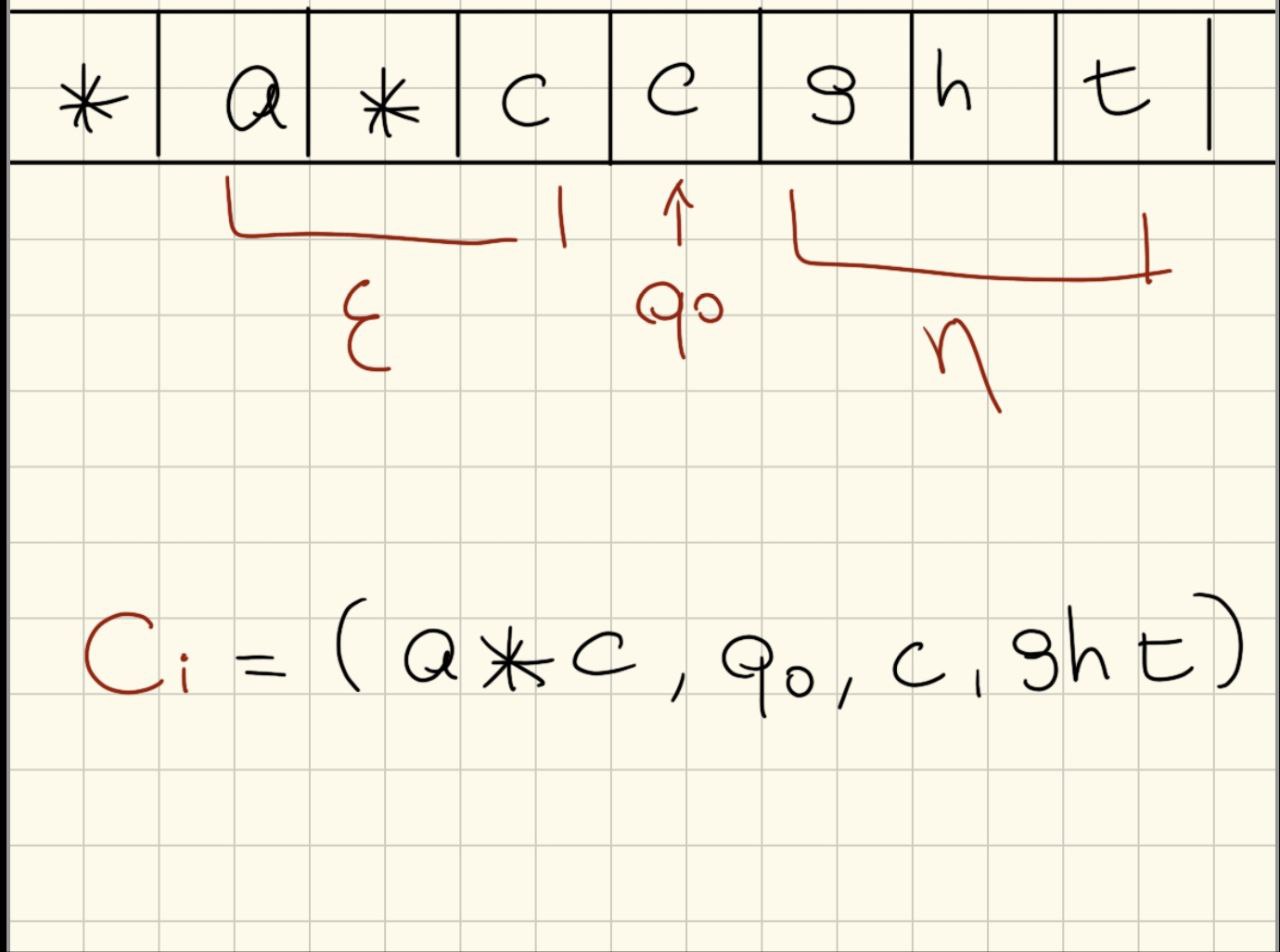 * a * c c g h t
ξ q₀ η
Ci = (a*c, q₀, c, ght)